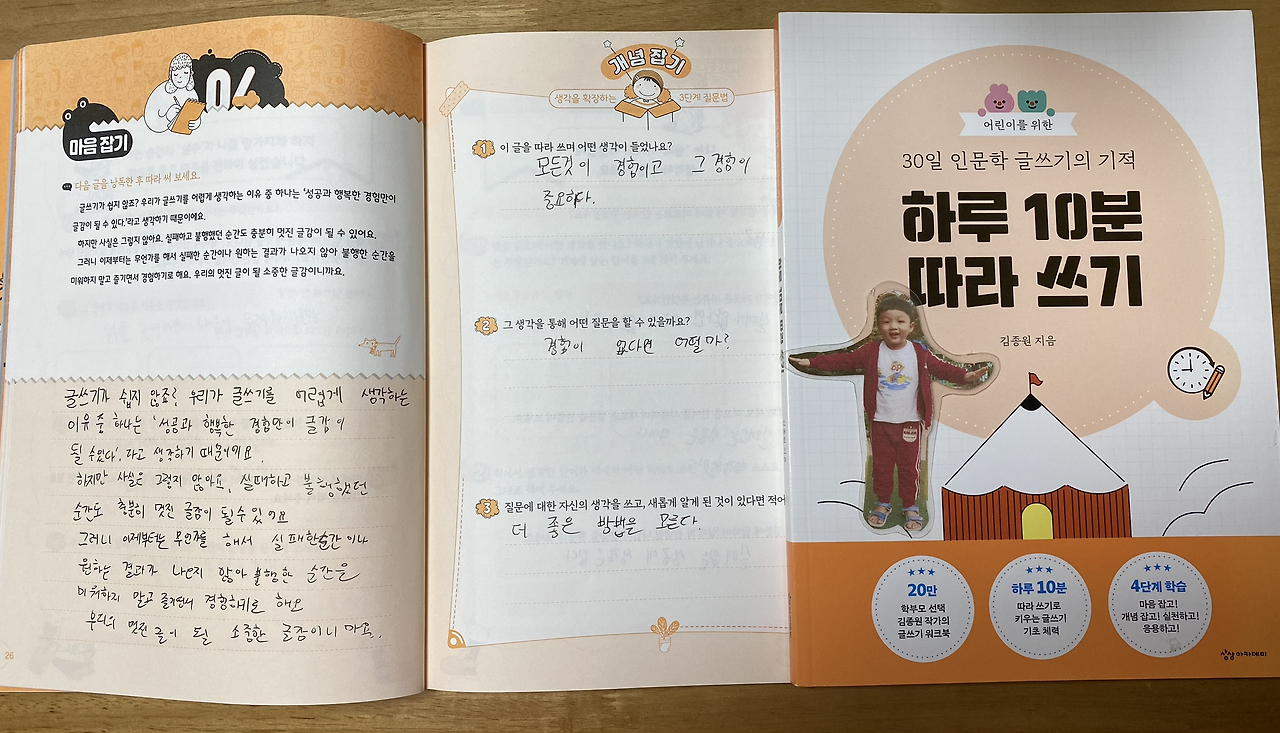 04
마음 잡기
다음 글을 낭독한 후 따라 써 보세요.
글쓰기가 쉽지 않죠? 우리가 글쓰기를 어렵게 생각하는 이유 중 하나는 '성공과 행복한 경험만이
글감이 될 수 있다.'라고 생각하기 때문이에요.
하지만 사실은 그렇지 않아요. 실패하고 불행했던 순간도 충분히 멋진 글감이 될 수 있어요.
그러니 이제부터는 무언가를 해서 실패한 순간이나 원하는 결과가 나오지 않아 불행한 순간을
미워하지 말고 즐기면서 경험하기로 해요. 우리의 멋진 글이 될 소중한 글감이니까요.
글쓰기가 쉽지 않죠? 우리가 글쓰기를 어렵게 생각하는
이유 중 하나는 '성공과 행복한 경험만이 글감이
될 수 있다'. 라고 생각하기 때문이에요.
하지만 사실은 그렇지 않아요. 실패하고 불행했던
순간도 충분히 멋진 글감이 될 수 있어요
그러니 이제부터는 무언가를 해서 실패한 순간이나
원하는 결과가 나오지 않아 불행한 순간을
미워하지 말고 즐기면서 경험하기로 해요
우리의 멋진 글이 될 소중한 글감이니까요.
26
개념 잡기
생각을 확장하는 3단계 질문법
1 이 글을 따라 쓰며 어떤 생각이 들었나요?
모든것이 경험이고 그 경험이
중요하다.
2 그 생각을 통해 어떤 질문을 할 수 있을까요?
경험이 없다면 어떨까?
3 질문에 대한 자신의 생각을 쓰고, 새롭게 알게 된 것이 있다면 적어
더 좋은 방법을 모른다.
어린이를 위한
30일 인문학 글쓰기의 기적
하루 10분
따라 쓰기
김종원 지음
20만
학부모 선택
김종원 작가의
글쓰기 워크북
하루 10분
따라 쓰기로
키우는 글쓰기
기초 체력
4단계 학습
마음 잡고!
개념 잡고! 실천하고!
응용하고!
상상아카데미